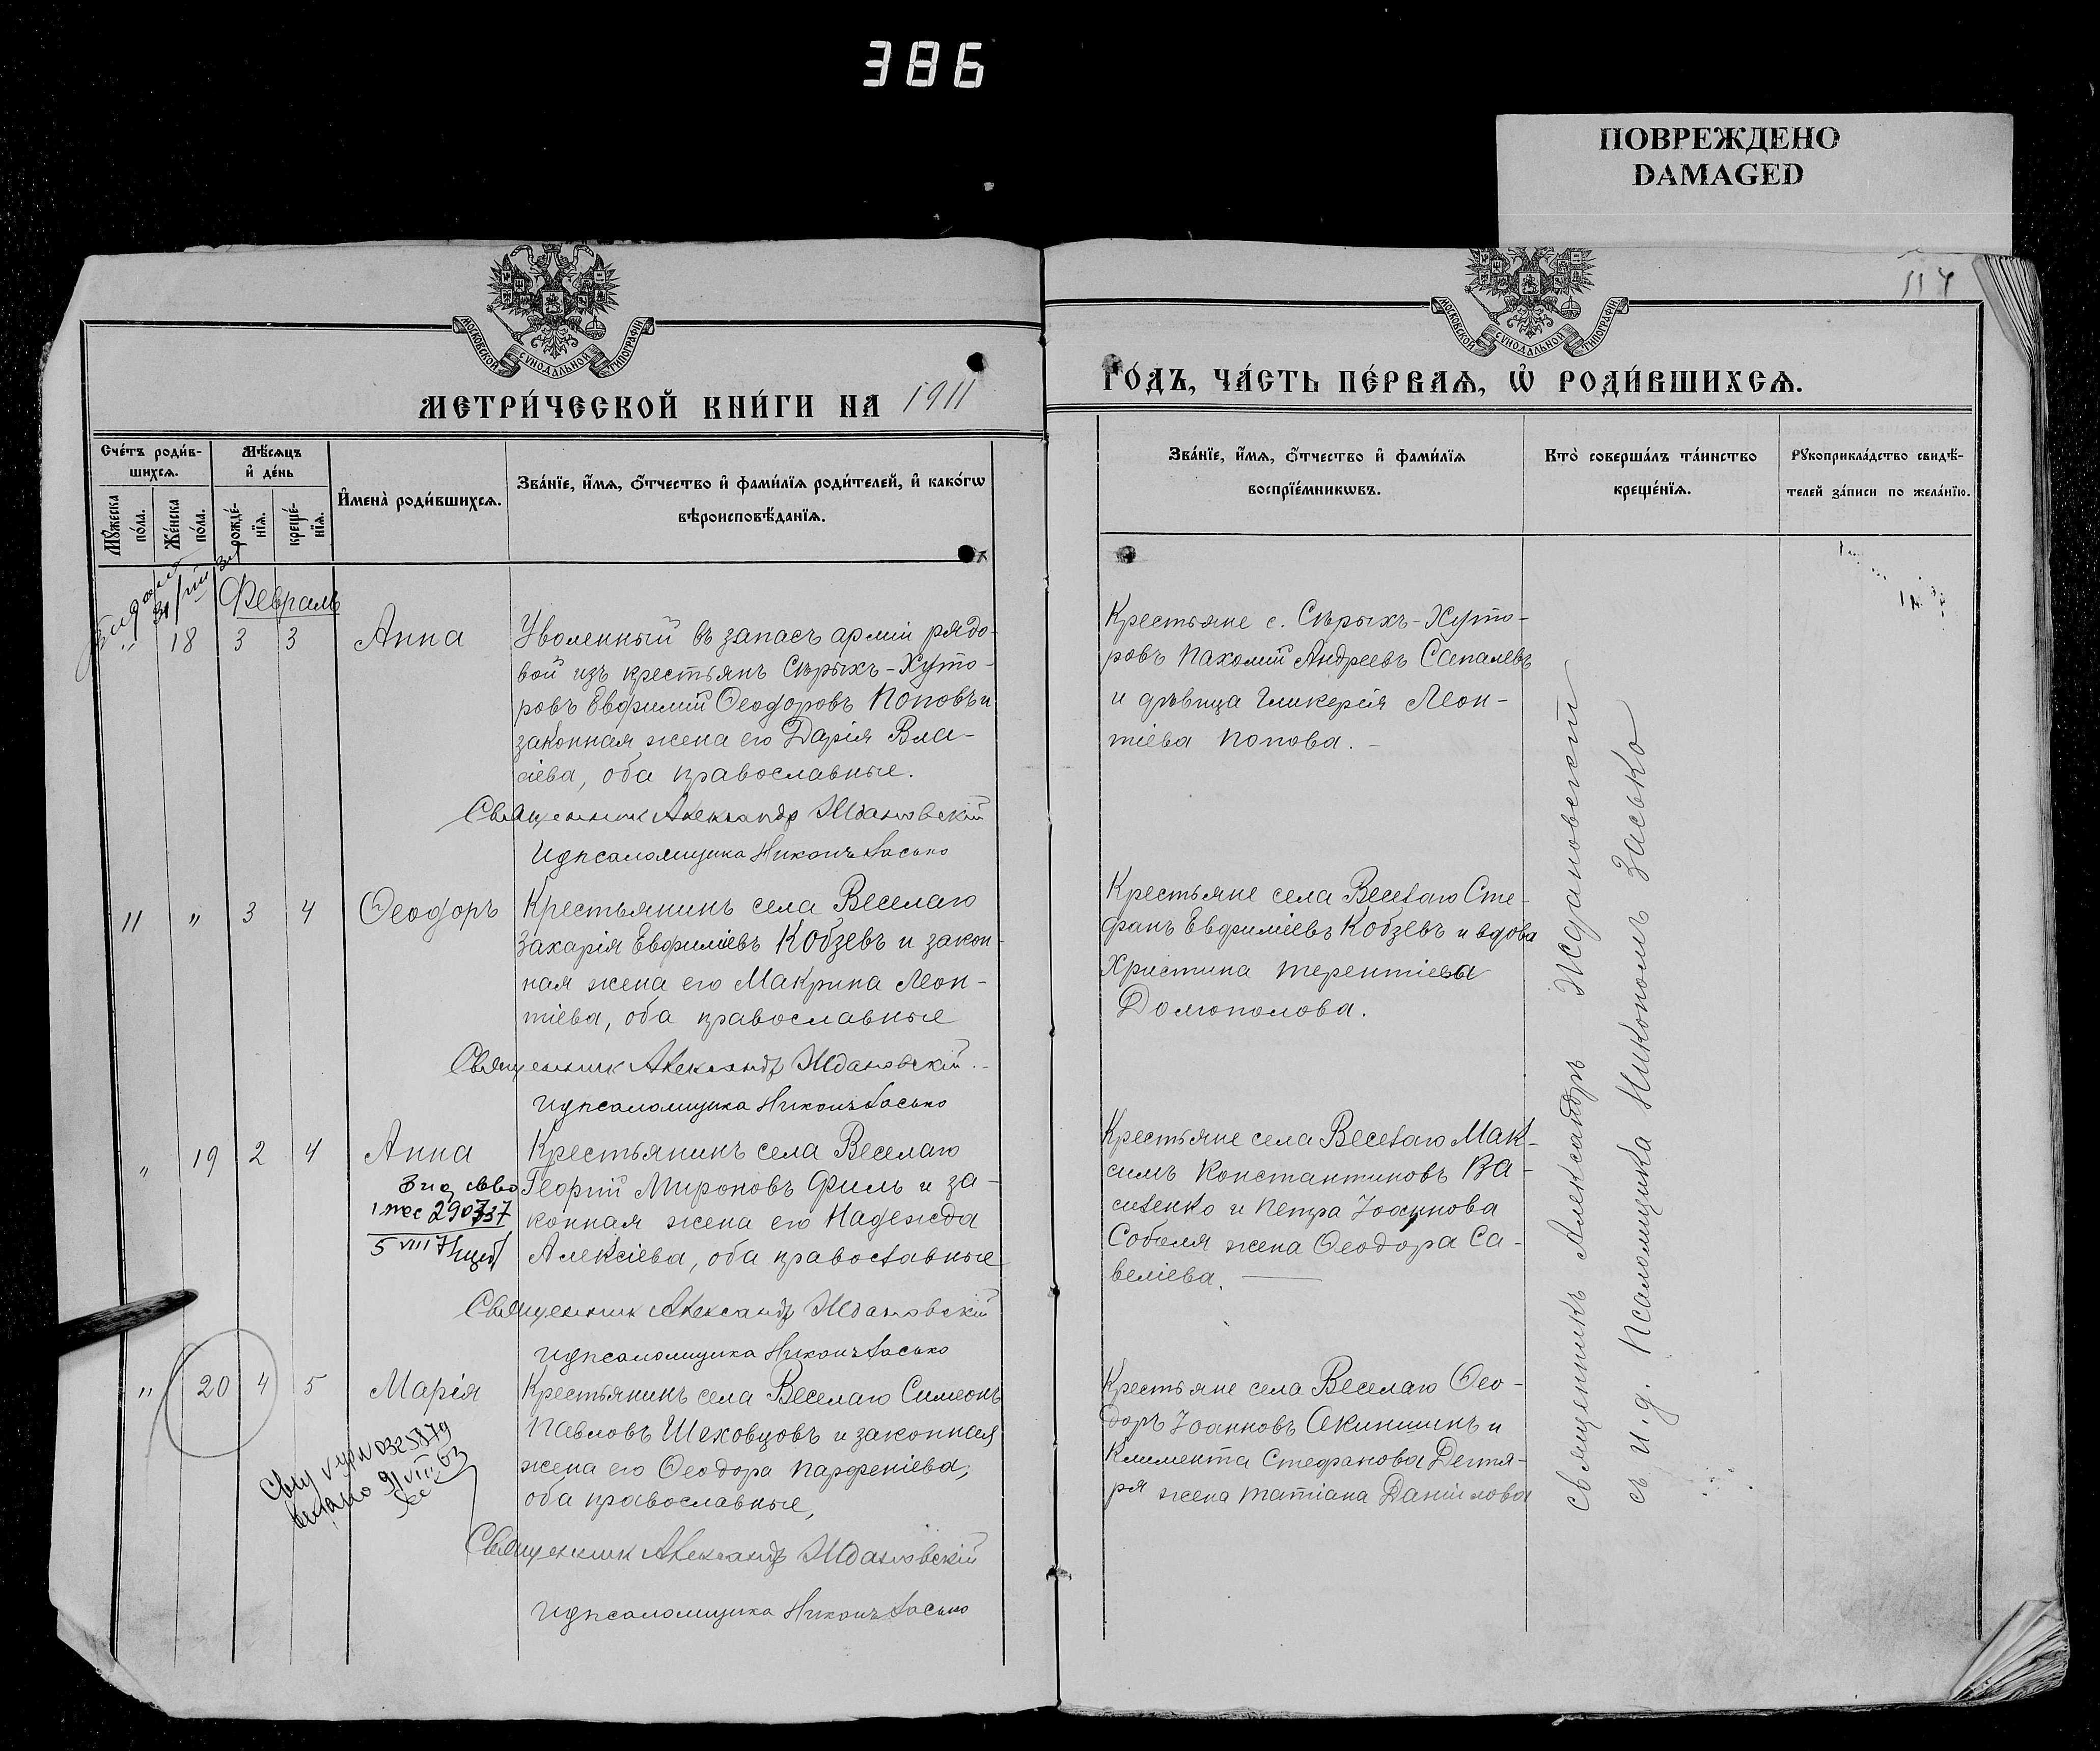 386
ПОВРЕЖДЕНО
DAMAGED
117
МОСКОВСКОЙ СѴНОДАЛЬНОЙ ТИПОГРАФІИ
МОСКОВСКОЙ СѴНОДАЛЬНОЙ ТИПОГРАФІИ
МЕТРИ́ЧЕСКОЙ КНИ́ГИ НА 1911
ГО́ДЪ, ЧА́СТЬ ПЕ́РВАѦ, Ѡ҆ РОДИ́ВШИХСѦ.
Сче́тъ роди́в-
шихсѧ.
Мꙋ́жеска по́ла.
Же́нска по́ла.
Мѣ́сѧцъ
и҆ де́нь
рожде́-
нїѧ.
креще́-
нїѧ.
И҆мена̀ роди́вшихсѧ.
Зва́нїе, и҆́мѧ, ѻ҆́тчество и҆ фами́лїѧ роди́телей, и҆ како́гѡ
вѣроисповѣ́данїѧ.
Зва́нїе, и҆́мѧ, ѻ҆́тчество и҆ фами́лїѧ
воспрїе́мникѡвъ.
Кто̀ соверша́лъ та́инство
креще́нїѧ.
Рꙋкоприкла́дство свидѣ́-
телей за́писи по жела́нїю.
Февраль
" 18 3 3 Анна
Уволенный въ запасъ арміи рядо-
вой изъ крестьянъ Сѣрыхъ-Хуто-
ровъ Евфимій Ѳеодоровъ Поповъ и
законная жена его Дарія Вла-
сіева, оба православные.
Священникъ Александръ Ждановскій
И д псаломщика Никонъ Засько
Крестьяне с. Сѣрыхъ-Хуто-
ровъ Пахомій Андреевъ Сапалевъ
и дѣвица Гликерія Леон-
тіева Попова. –
11 " 3 4 Ѳеодоръ
Крестьянинъ села Веселаго
Захарія Евфиміевъ Кобзевъ и закон-
ная жена его Макрина Леон-
тіева, оба православные
Священникъ Александръ Ждановскій.
И д псаломщика Никонъ Засько
Крестьяне села Веселаго Сте-
фанъ Евфиміевъ Кобзевъ и вдова
Христина Терентіева
Долгополова.
" 19 2 4 Анна
1 пес 290737
5 VIII
Крестьянинъ села Веселаго
Георгій Мироновъ Филь и за-
конная жена его Надежда
Алексіева, оба православные
Священникъ Александръ Ждановскій
И д псаломщика Никонъ Засько
Крестьяне села Веселаго Мак-
симъ Константиновъ Ва-
силенко и Петра Іоаннова
Соболя жена Ѳеодора Са-
веліева. —
" 20 4 5 Марія
выдано 9/VIII 63
Крестьянинъ села Веселаго Симеонъ
Павловъ Шеховцовъ и законная
жена его Ѳеодора Парфеніева,
оба православные,
Священникъ Александръ Ждановскій
И д псаломщика Никонъ Засько
Крестьяне села Веселаго Ѳео-
доръ Іоанновъ Акиншинъ и
Климента Стефанова Дегтя-
ря жена Татіана Даніилова
Священникъ Александръ Ждановскій
съ и. д. Псаломщика Никономъ Засько